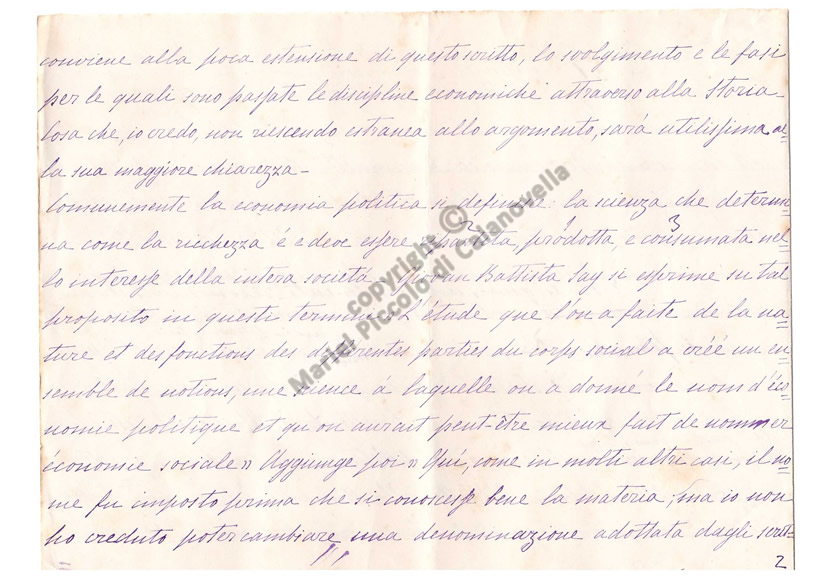 conviene alla poca estensione di questo scritto, lo svolgimento e le fasi
per le quali sono passate le discipline economiche attraverso alla Storia-
Cosa che, io credo, non riescendo estranea allo argomento, sará utilissima al=
la sua maggiore chiarezza-
Comunemente la economia politica si definisce: la scienza che determi=
na come la ricchezza é e deve essere 2 1 3
prodotta, e consumata nel=
lo interesse della intera societá- Giovan Battista Say si esprime su tal
proposito in questi termini: L'étude que l'on a faite de la na=
ture et des fonctions des differentes parties du corps social a créé un en=
semble de notions, une sience á laquelle on a donné le nom d'éco=
nomie politique et qu'on aurait peut-être mieux fait de nommer
économie sociale» Aggiunge poi» Quí, come in molti altri casi, il no=
me fu imposto prima che si conoscesse bene la materia; ma io non
ho creduto poter cambiare una denominazione adottata dagli scrit=
2
copyright ©
Mariel Piccolo di Calanovella